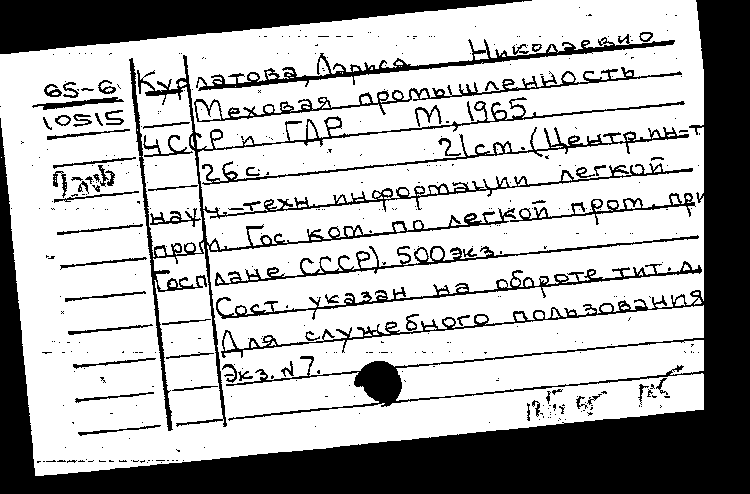 65-6
10515
Курлатова, Лариса Николаевно
Меховая промышленность
ЧССР и ГДР М., 1965.
26 с. 21 см. (Центр. ин-т
науч.-техн. информации легкой
пром. Гос. ком. по легкой пром. при
Госплане СССР). 500 экз.
Сост. указан на обороте тит. л.
Для служебного пользования
Экз. N 7.